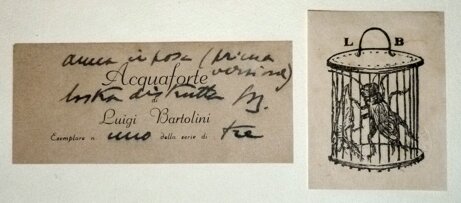 anna in posa (prima
Acquaforte versione)
lastra distrutta
di
Luigi Bartolini
Esemplare n. uno della serie di tre
L B